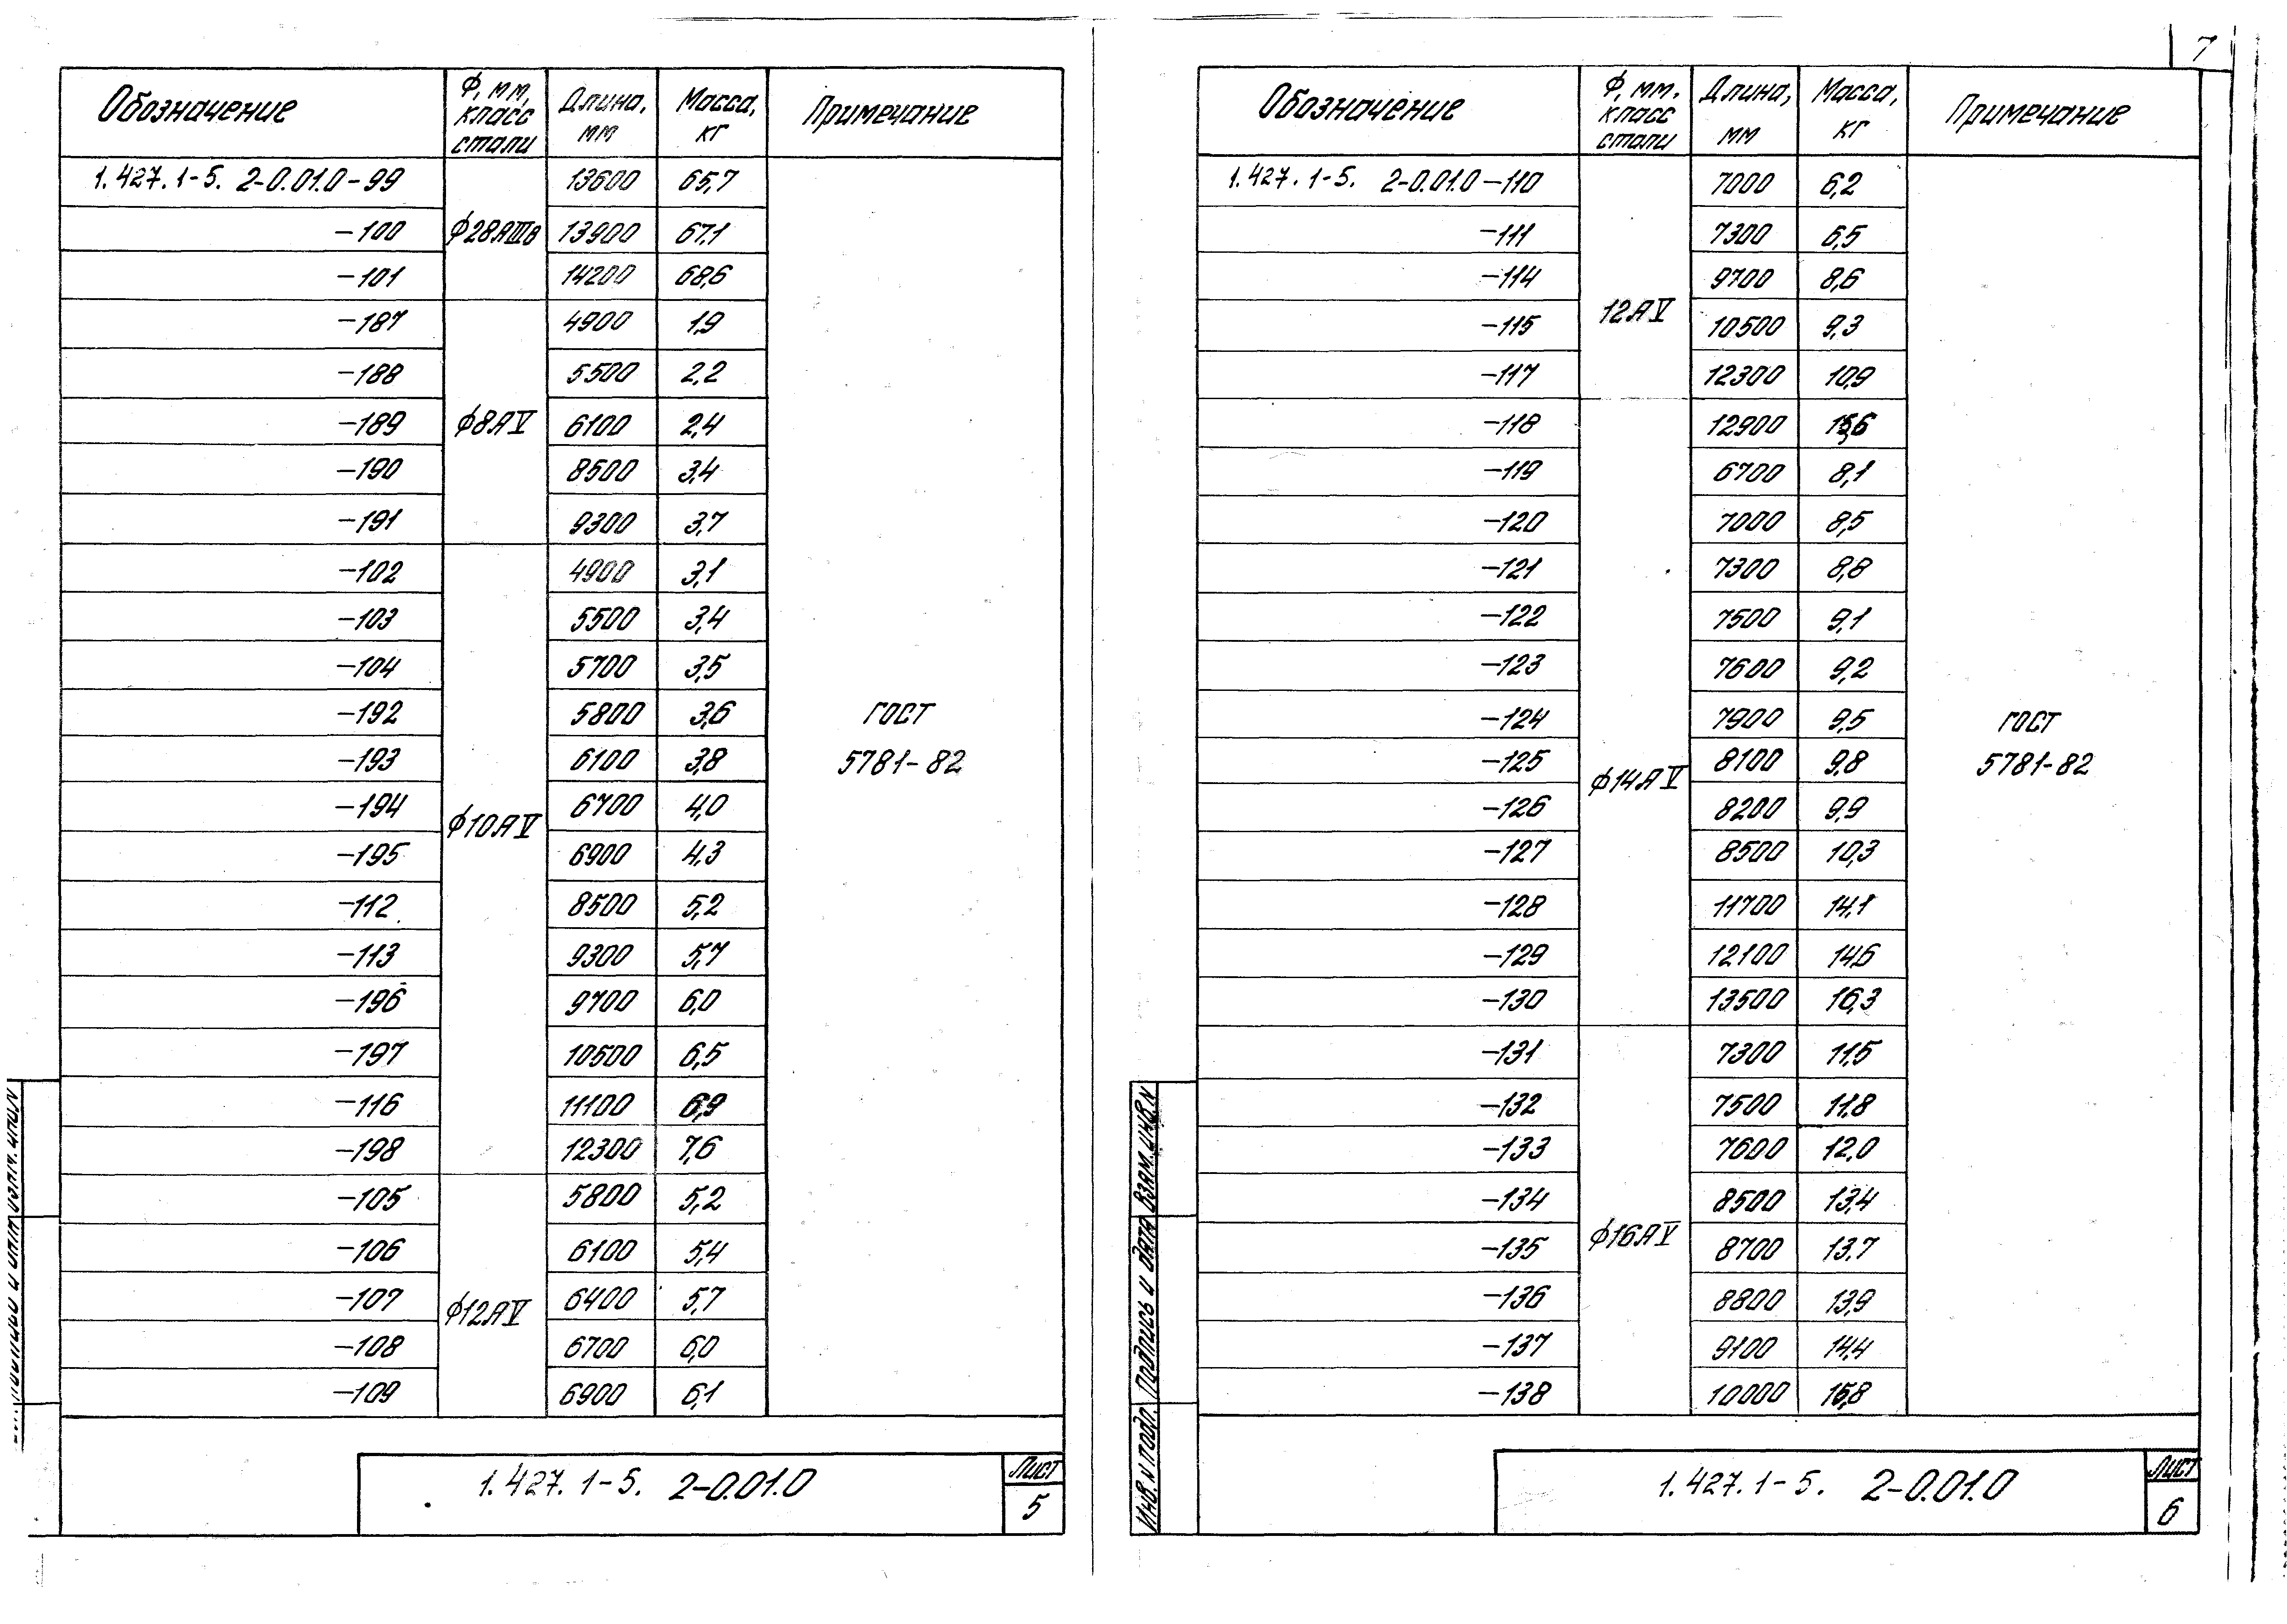 7
Обозначение Ф, мм, класс стали Длина, мм Масса, кг Примечание
1.427.1-5. 2-0.01.0-99 13600 65,7
-100 ф28АIIIв 13900 67,1
-101 14200 68,6
-187 4900 1,9
-188 5500 2,2
-189 ф8АV 6100 2,4
-190 8500 3,4
-191 9300 3,7
-102 4900 3,1
-103 5500 3,4
-104 5700 3,5
-192 5800 3,6 ГОСТ
-193 6100 3,8 5781-82
-194 6700 4,0
-195 ф10АV 6900 4,3
-112 8500 5,2
-113 9300 5,7
-196 9700 6,0
-197 10500 6,5
-116 11100 6,9
-198 12300 7,6
-105 5800 5,2
-106 6100 5,4
-107 ф12АV 6400 5,7
-108 6700 6,0
-109 6900 6,1
1.427.1-5. 2-0.01.0 Лист
5
Обозначение Ф, мм. класс стали Длина, мм Масса, кг Примечание
1.427.1-5. 2-0.01.0-110 7000 6,2
-111 7300 6,5
-114 9700 8,6
-115 12АV 10500 9,3
-117 12300 10,9
-118 12900 15,6
-119 6700 8,1
-120 7000 8,5
-121 7300 8,8
-122 7500 9,1
-123 7600 9,2
-124 7900 9,5 ГОСТ
-125 ф14АV 8100 9,8 5781-82
-126 8200 9,9
-127 8500 10,3
-128 11700 14,1
-129 12100 14,6
-130 13500 16,3
-131 7300 11,5
-132 7500 11,8
-133 7600 12,0
-134 8500 13,4
-135 ф16АV 8700 13,7
-136 8800 13,9
-137 9100 14,4
-138 10000 15,8
ИНВ. N ПОДЛ. ПОДПИСЬ И ДАТА ВЗАМ. ИНВ. N
1.427.1-5. 2-0.01.0 Лист
6